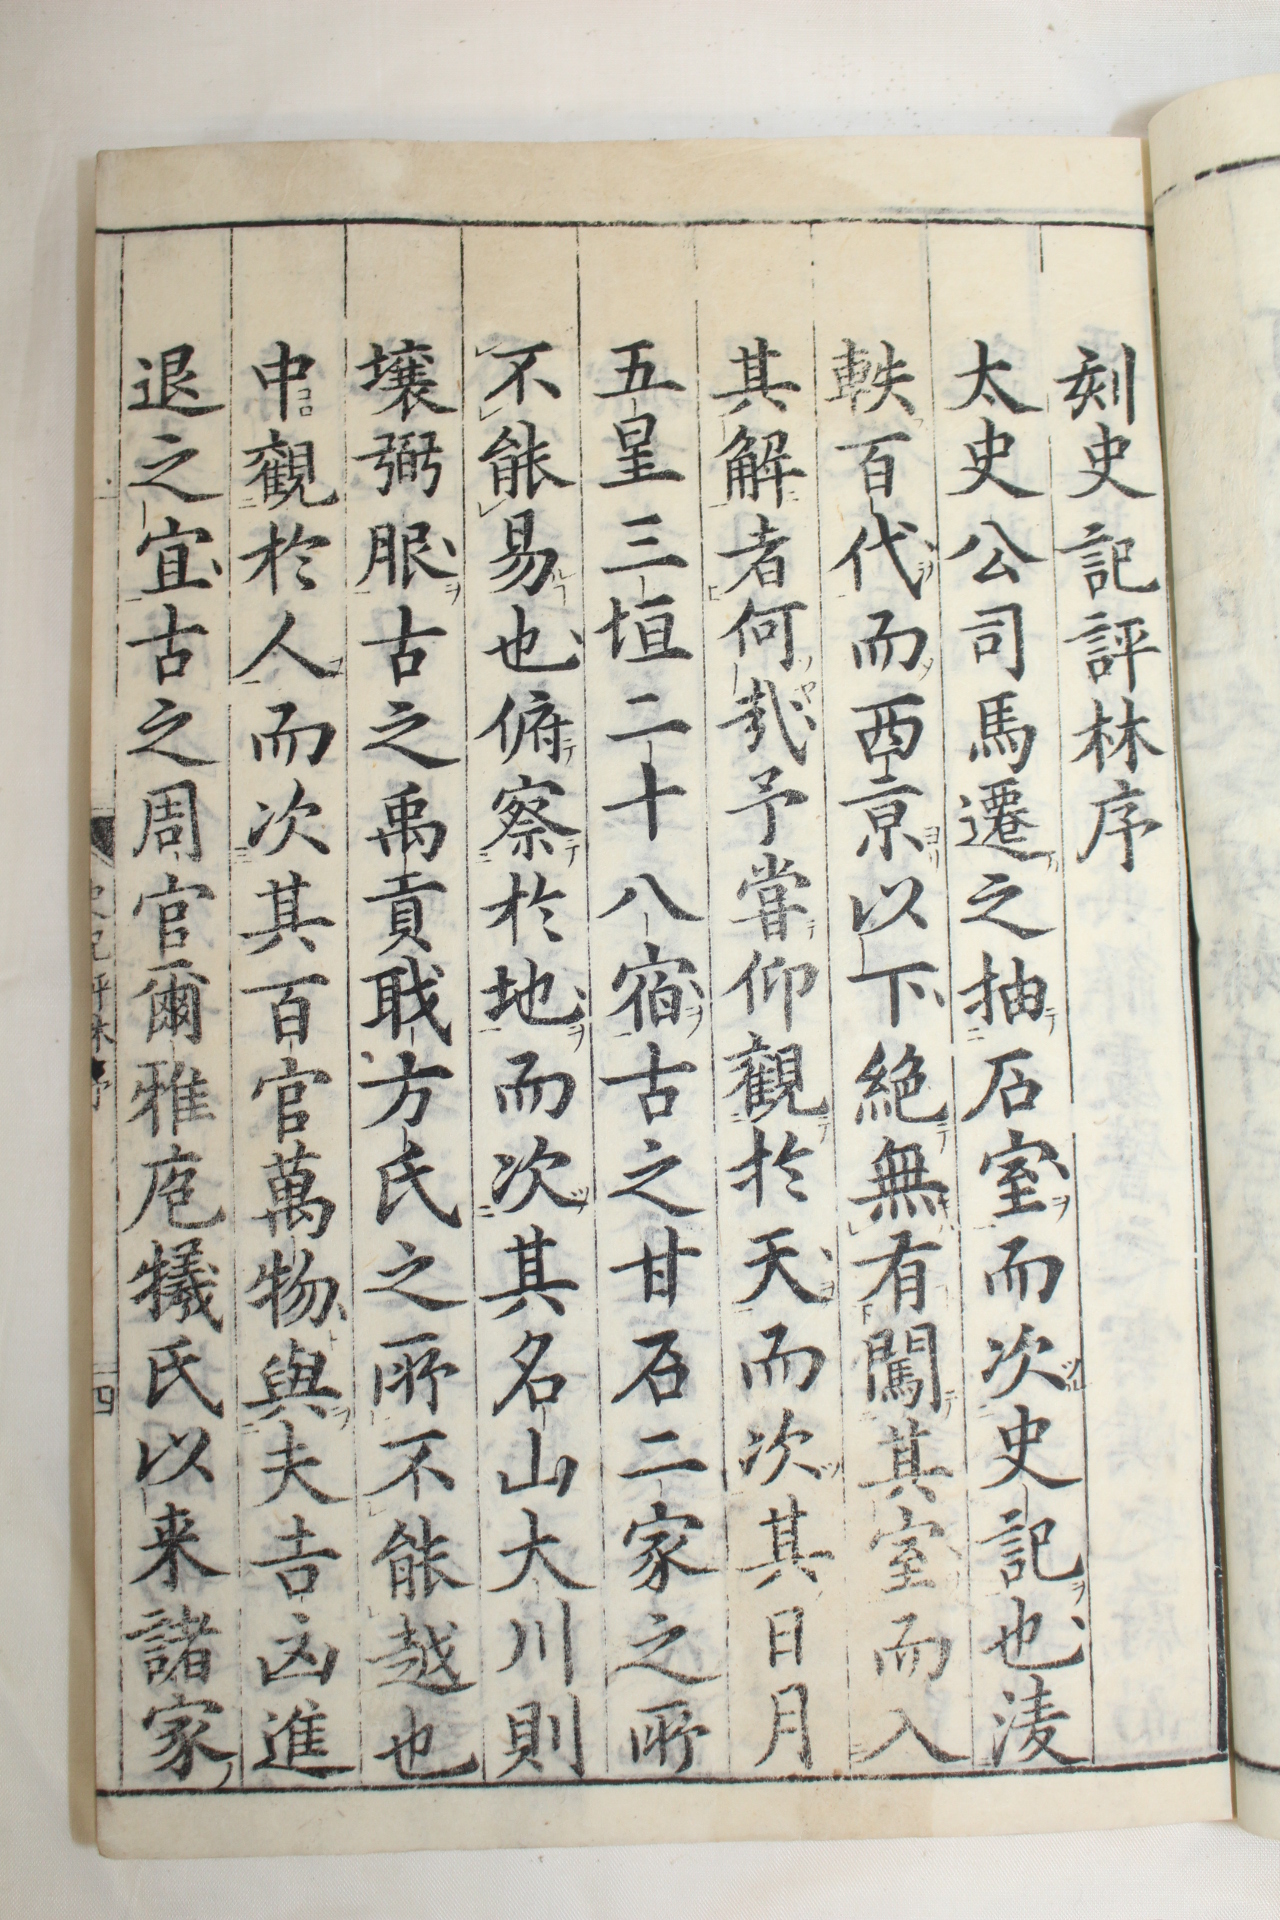 刻史記評林序
太史公司馬遷之抽石室而次史記也淩
軼百代而西京以下絶無有闖其室而入
其解者何哉予嘗仰觀於天而次其日月
五星三垣二十八宿古之甘石二家之所
不能易也俯察於地而次其名山大川則
壤弼服古之禹貢職方氏之所不能越也
中觀於人而次其百官萬物與夫吉凶進
退之宜古之周官爾雅庖犧氏以来諸家
史記評林序
四